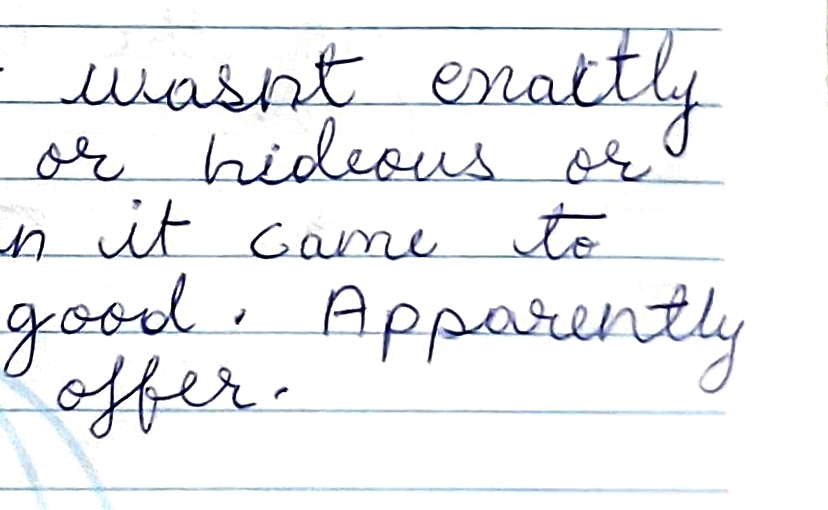 wasnt exactly
or hideous or
n it came to
good. Apparently
offer.